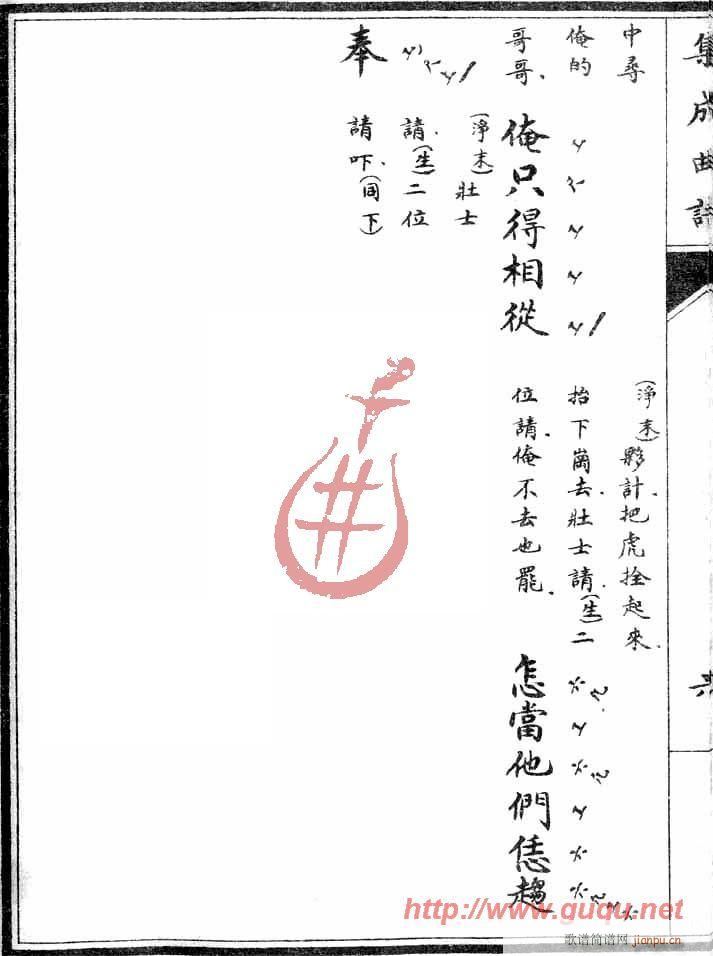 集成曲譜
中尋
(淨末)夥計.把虎拴起來.
俺的
抬下崗去.壯士請.(生)二
哥哥.
位請.俺不去也罷.
怎當他們恁趨
奉
俺只得相從
(淨末)壯士
請.(生)二位
請吓.(同下)
http://www.guqu.net
歌谱简谱网 jianpu.cn